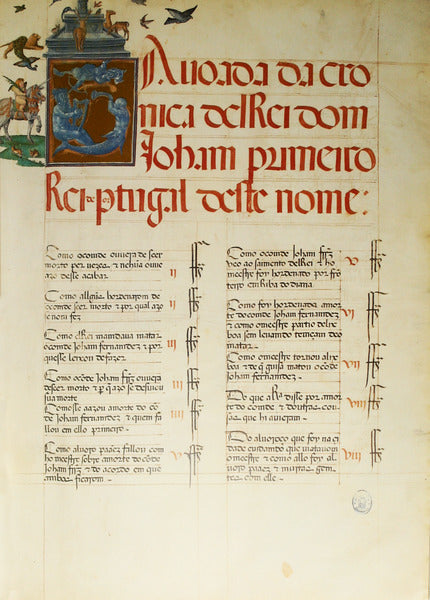 Tauoada da cro
nica delRei dom
Joham primeiro
Rei de portugal deste nome:
Como oconde ouuera de seer
morto per vezes & nehũa ouue
azo desse acabar. II
Como algũus hordenarom de
oconde seer morto & por qual azo
se nom fez II
Como elRei mandaua matar
oconde Joham fernandez & por
quesse leixou de fazer. III
Como ocõde Joham frz ouuera
deseer morto & por
sua morte III
Comosse aazou amorte do cõ
de Joham fernandez & quem fa
llou em ello primeiro. IIII
Como aluoro paaez fallou com
ho meestre sobre amorte do cõde
Joham frz & do acordo em que
ambas ficarom. V
Como oconde Joham frz
veo ao saimento delRei & ho
meestre foy hordenado por frõ
teiro em Riba do diana V
Como foy hordenada amor
te do comde Joham fernandez
& como omeestre partio de lix
boa sem leuando tençam deo
matar. VI
Como omeestre tornou alix
boa & de guisa matou o cõde
Joham fernandez. VII
Do que a Rª disse por amor
te do comde & doutras cou
sas que hi auierom. VIII
Do aluoroço que foy na ci
dade cuidando que matauom
omeestre & como allo foy al
uoro paaez & muitas gem
tes com elle. VIIII